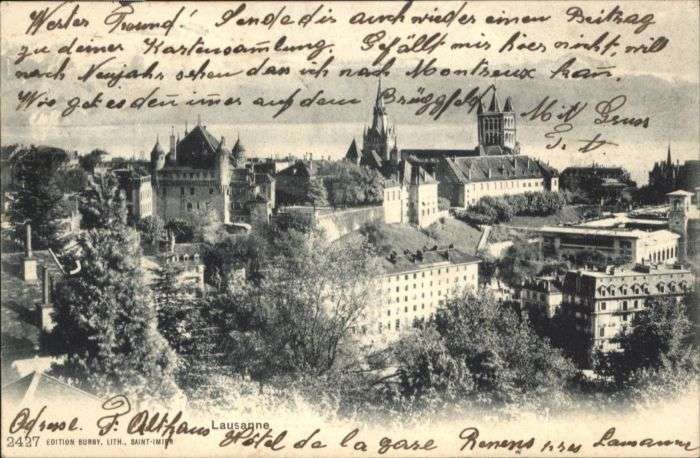 Werter Freund! Sende dir auch wieder einen Beitrag
zu deiner Kartensammlung. Gefällt mir hier nicht, will
nach Neujahr sehen dass ich nach Montreux kan̄.
Wie get es den̄ im̄er auf dem Brüggfeld
Mit Gruss
F. A.
Lausanne
Adresse. F. Althaus Hôtel de la gare Renens pres Lausanne
2427 EDITION BURGY, LITH., SAINT-IMIER